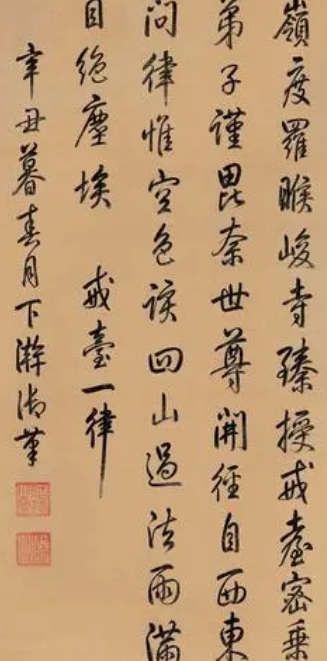 嶺度羅睺峻寺臻授戒臺密乘
弟子謹毘奈世尊開徑自西東
問律惟空色四山過法雨滿
目絕塵埃 戒臺一律
辛丑暮春月下澣御筆